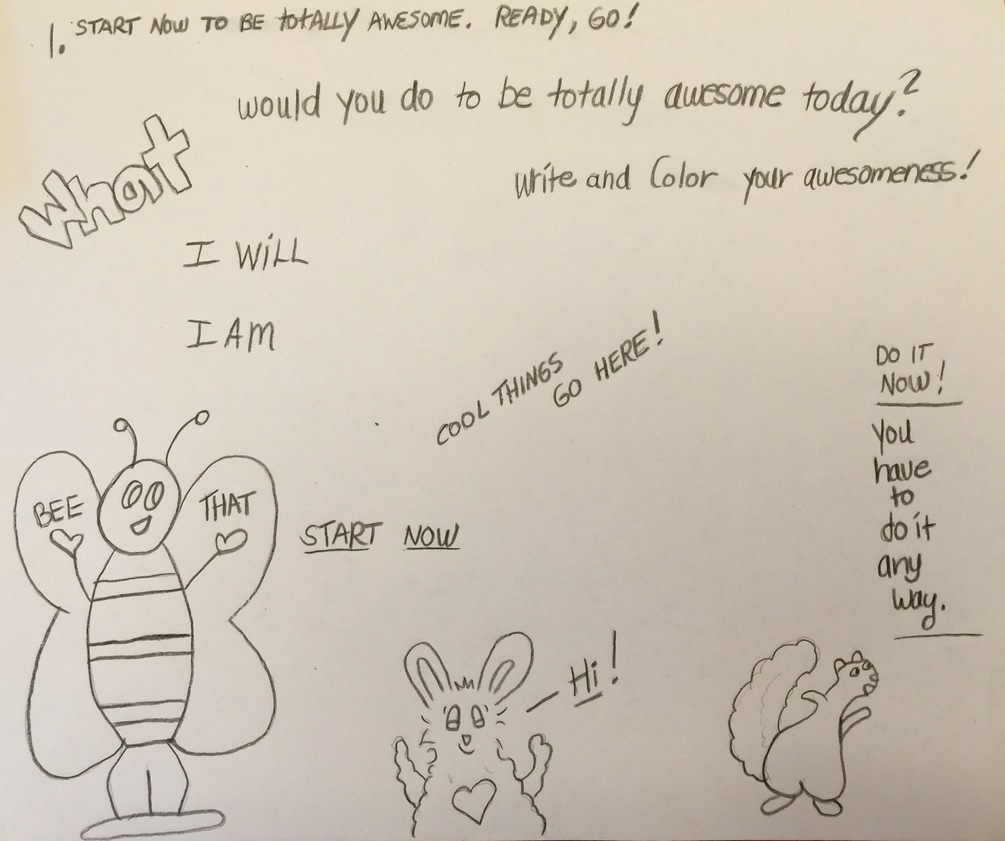 1. START NOW TO BE totALLY AWESOME. READY, GO!
What would you do to be totally awesome today?
write and Color your awesomeness!
I WiLL
I AM
COOL THINGS
GO HERE!
DO IT
NOW!
you
have
to
do it
any
way.
BEE THAT
START NOW
Hi!